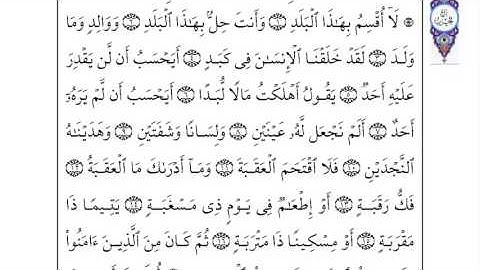 لَآ أُقْسِمُ بِهَـٰذَا ٱلْبَلَدِ ۝ وَأَنتَ حِلٌّۢ بِهَـٰذَا ٱلْبَلَدِ ۝ وَوَالِدٍ وَمَا
وَلَدَ ۝ لَقَدْ خَلَقْنَا ٱلْإِنسَـٰنَ فِى كَبَدٍ ۝ أَيَحْسَبُ أَن لَّن يَقْدِرَ
عَلَيْهِ أَحَدٌ ۝ يَقُولُ أَهْلَكْتُ مَالًا لُّبَدًا ۝ أَيَحْسَبُ أَن لَّمْ يَرَهُۥٓ
أَحَدٌ ۝ أَلَمْ نَجْعَل لَّهُۥ عَيْنَيْنِ ۝ وَلِسَانًا وَشَفَتَيْنِ ۝ وَهَدَيْنَـٰهُ
ٱلنَّجْدَيْنِ ۝ فَلَا ٱقْتَحَمَ ٱلْعَقَبَةَ ۝ وَمَآ أَدْرَىٰكَ مَا ٱلْعَقَبَةُ ۝
فَكُّ رَقَبَةٍ ۝ أَوْ إِطْعَـٰمٌ فِى يَوْمٍ ذِى مَسْغَبَةٍ ۝ يَتِيمًا ذَا
مَقْرَبَةٍ ۝ أَوْ مِسْكِينًا ذَا مَتْرَبَةٍ ۝ ثُمَّ كَانَ مِنَ ٱلَّذِينَ ءَامَنُوا۟